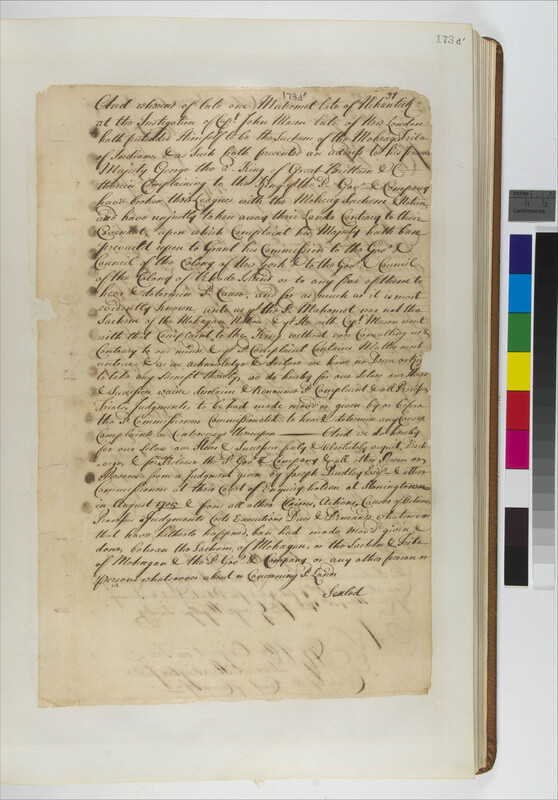 173d'
173d'
And whereas of late one Mahomet late of Nihantick
at the Instigation of Cpt. John Mason late of New London
hath pretended Himself to be the Sachem of the Mohegan Tribe
of Indians, & as Such hath presented an address to his
Majesty George the 2d. King of Great Brittain &c
therein Complaining to the King of the sd. Govr. & Company
have broken their Leagues with the Moheag Sachems & Nation,
and have unjustly taken away their Lands Contary to their
Covenant, upon which Complaint his Majesty hath been
prevaild upon to Grant his Commission to the Govr. &
Council of the Colony of New York & to the Govr. & Council
of the Colony of Rhode Island or to any five of them to
hear & determin sd. Cause, and for as much as it is most
certainly known unto us yt. sd. Mahomet was not the
Sachem of the Mohegan Nation, & yt. He with Cpt. Mason went
with that Complaint to the King without ever Consulting us &
Contrary to our minds & yt. sd. Complaint Contains Matter most
untrue & as we acknowledge & declare we have no Desire
to take any Benefit thereby, so do hereby for our Selves our Heirs
& Successors waive disclaim & Renounce sd. Complaint & all
Suits, Judgments, to be had made mov'd or given by or before
the sd. Commissioners Commissionated to hear & determin any Causes
Complaint or Controversys thereupon ——— And we do hereby
for our Selves our Heirs & Successors fully & Absolutely acquit
& Release the sd. Govr. & Company & all other Person or
Persons from a Judgment given by Joseph Dudley Esqr. & other
Commissioners at their Court of Enquiry holden at Stoningtown
in August 1705 & from all other Claims, Actions, Causes of Actions
Judgments Costs Executions Dues & Demands whatsoever
that have hitherto happned, been had made mov'd given &
done, between the Sachems of Mohegan, or the Sachem & Tribe
of Mohegan & the sd. Govr. & Company or any other person or
persons whatsoever about or Concerning sd. Lands
Sealed